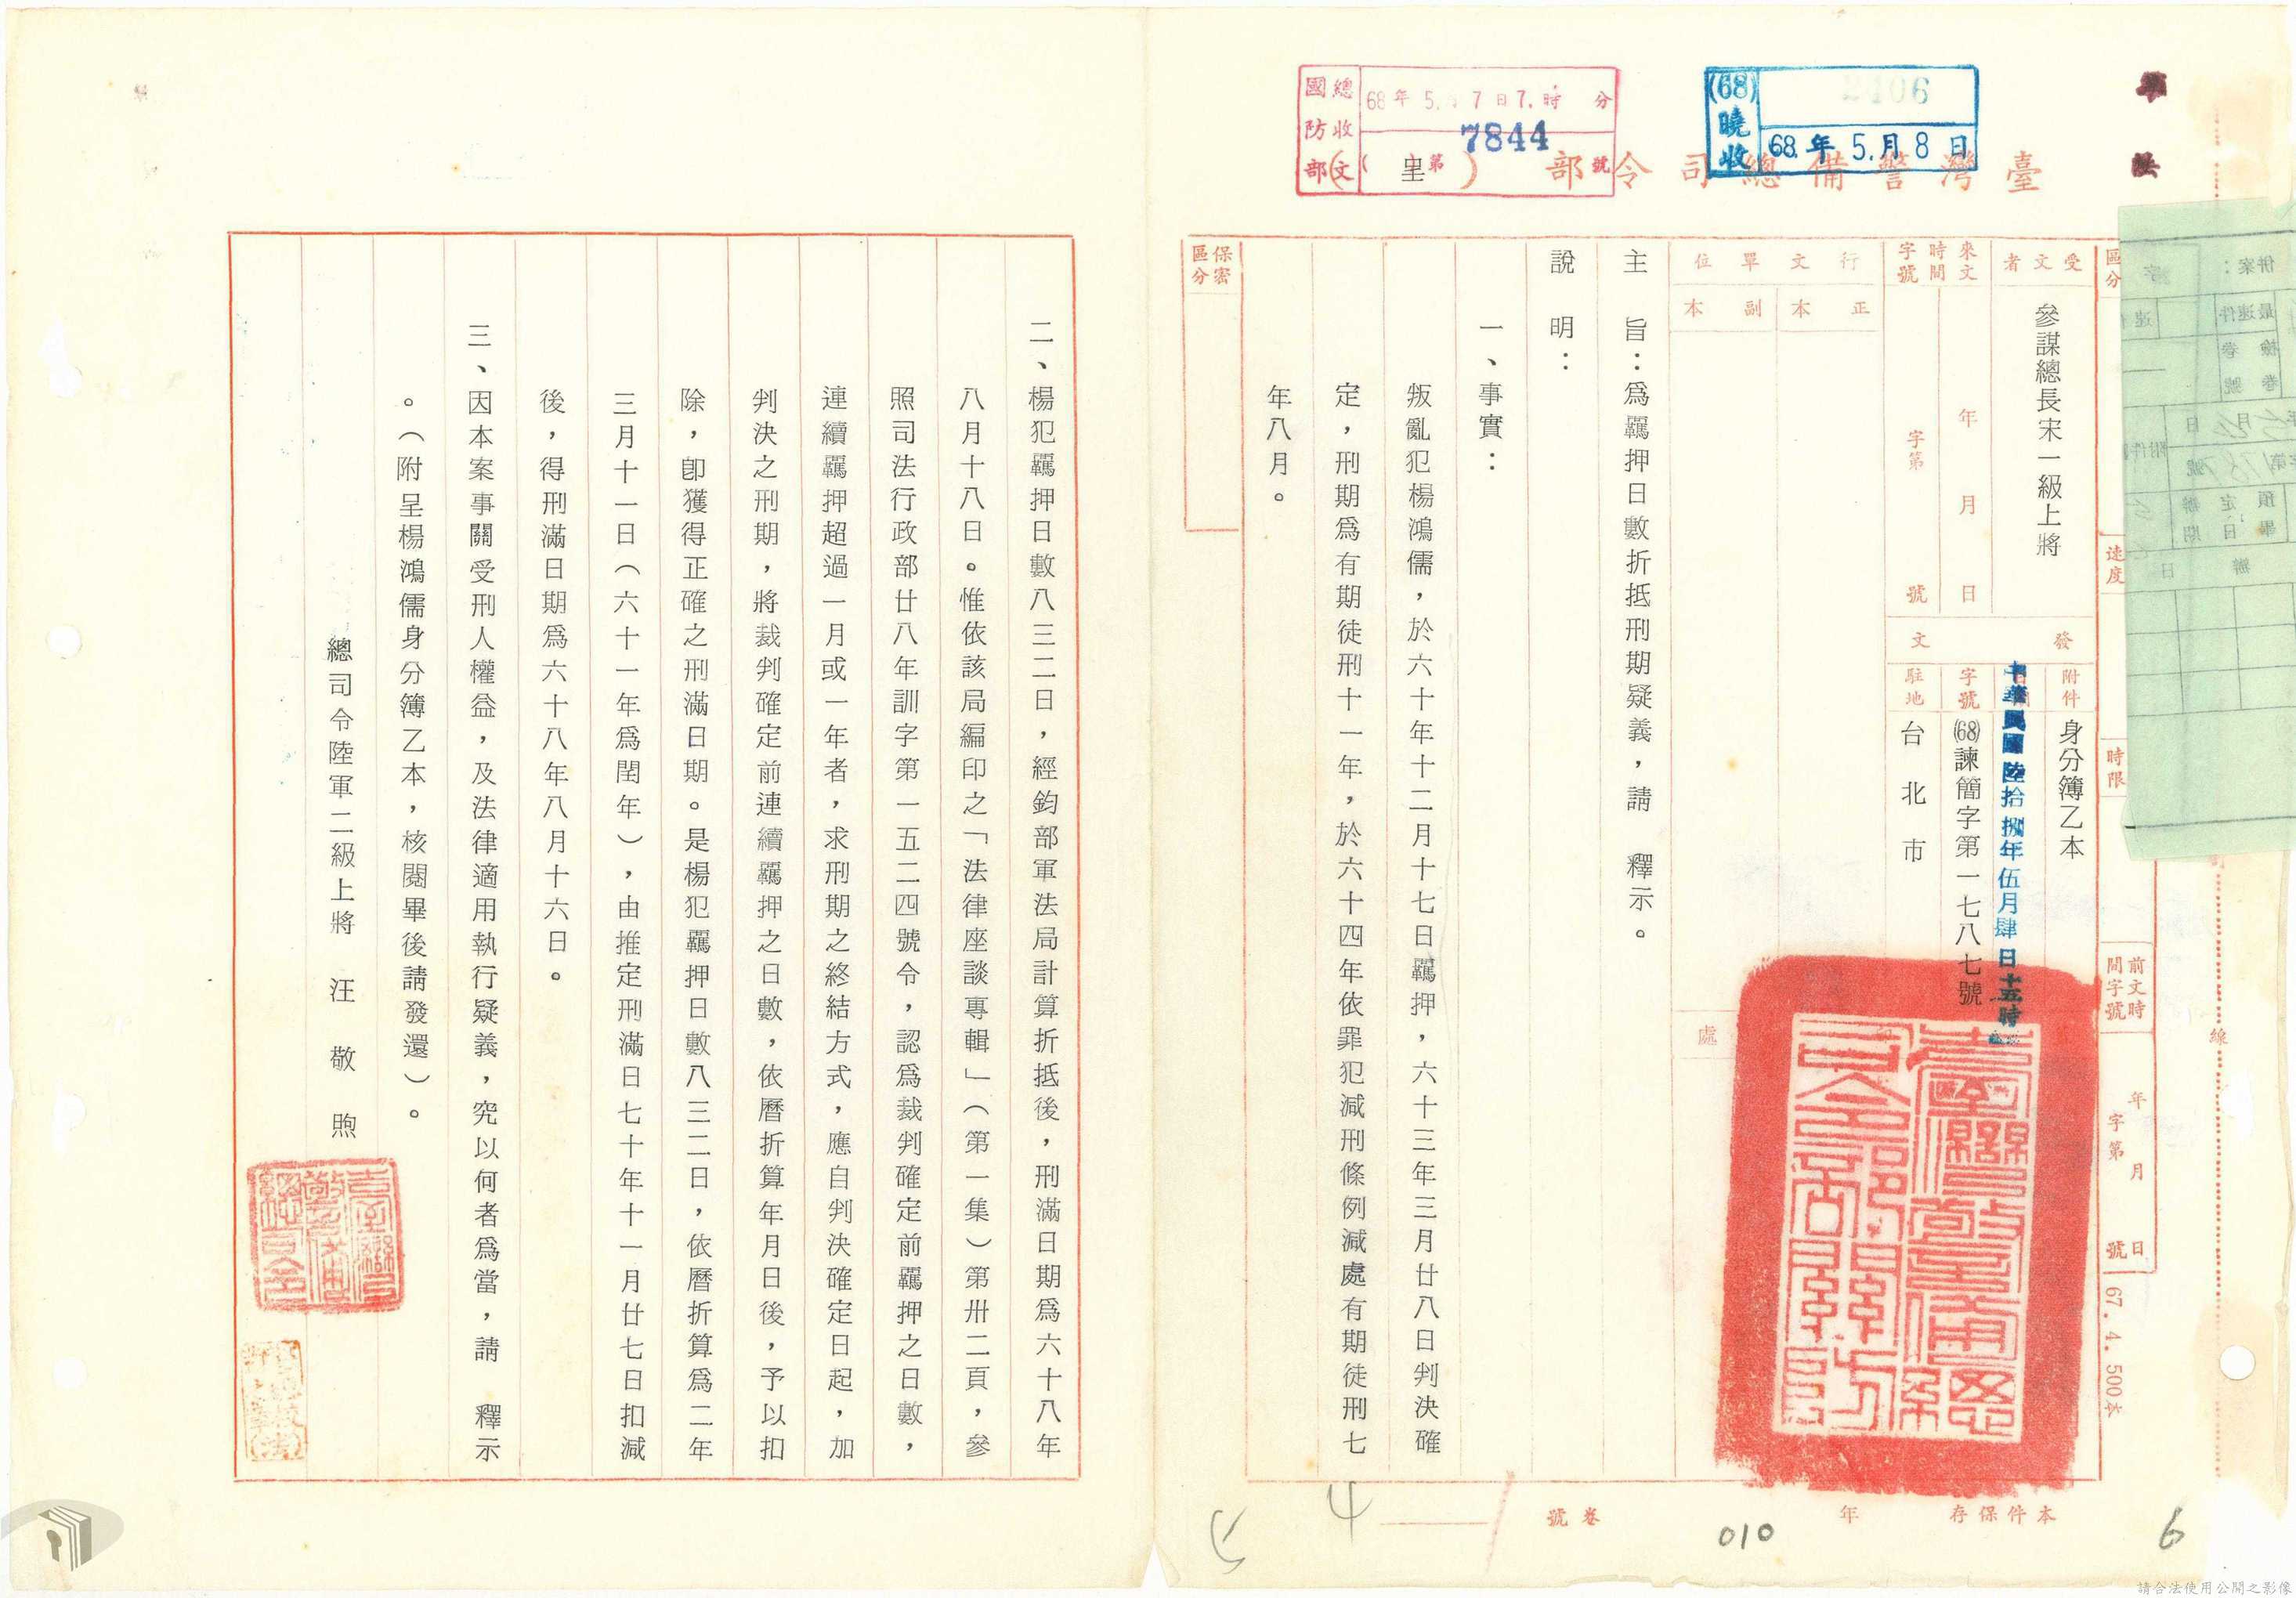 臺灣警備總司令部（呈）
國防部
總收文
68年5.月7日7.時 分
第7844號
(68)
曉收
2406
68.年5.月8日
區分
速度
時限
前文時間字號
年 月 日
字第 號
67.4.500本
受文者
參謀總長宋一級上將
來文
時間
字號
年 月 日
字第 號
發文
附件
身分簿乙本
中華民國陸拾捌年伍月肆日十五時
字號
(68)諫簡字第一七八七號
駐地
台北市
行文單位
正本
副本
處
保密區分
主旨：為羈押日數折抵刑期疑義，請 釋示。
說明：
一、事實：
叛亂犯楊鴻儒，於六十年十二月十七日羈押，六十三年三月廿八日判決確
定，刑期為有期徒刑十一年，於六十四年依罪犯減刑條例減處有期徒刑七
年八月。
本件保存 年
卷號
010
6
4
5
二、楊犯羈押日數八三二日，經鈞部軍法局計算折抵後，刑滿日期為六十八年
八月十八日。惟依該局編印之「法律座談專輯」（第一集）第卅二頁，參
照司法行政部廿八年訓字第一五二四號令，認為裁判確定前羈押之日數，
連續羈押超過一月或一年者，求刑期之終結方式，應自判決確定日起，加
判決之刑期，將裁判確定前連續羈押之日數，依曆折算年月日後，予以扣
除，卽獲得正確之刑滿日期。是楊犯羈押日數八三二日，依曆折算為二年
三月十一日（六十一年為閏年），由推定刑滿日七十年十一月廿七日扣減
後，得刑滿日期為六十八年八月十六日。
三、因本案事關受刑人權益，及法律適用執行疑義，究以何者為當，請 釋示
。（附呈楊鴻儒身分簿乙本，核閱畢後請發還）。
總司令陸軍二級上將 汪敬煦
線
請合法使用公開之影像